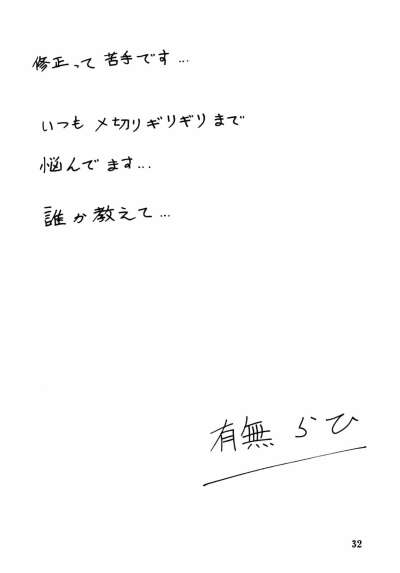 修正って苦手です…
いつも〆切りギリギリまで
悩んでます…
誰か教えて…
有無らひ
32